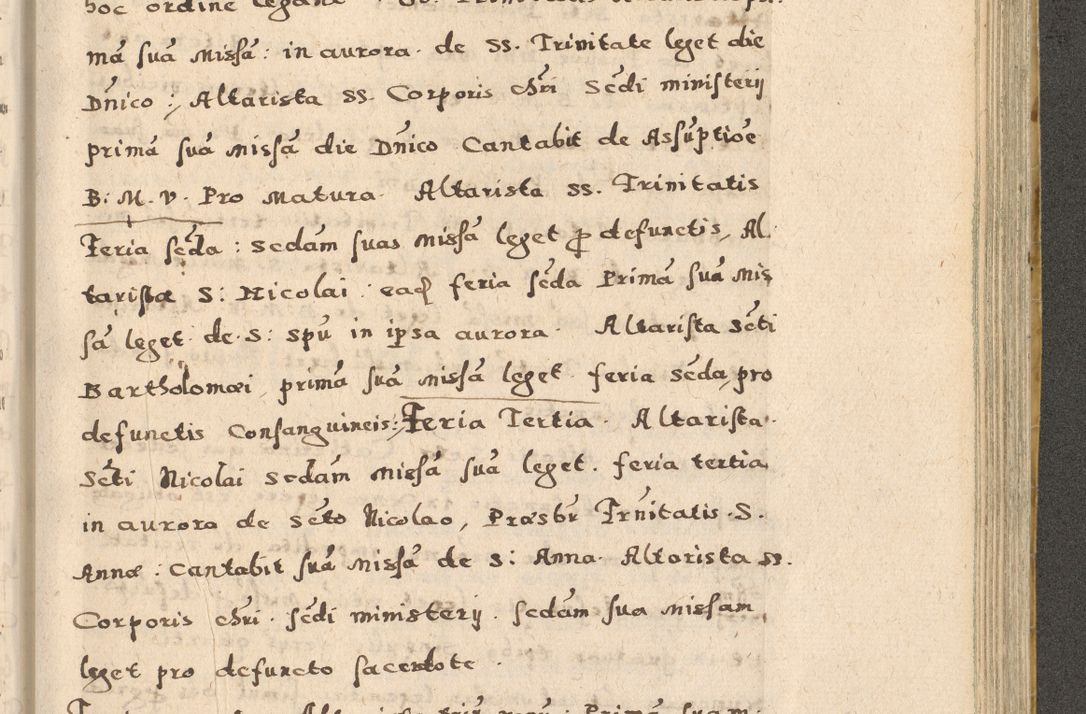 hoc ordine
mā suā missā: in aurora. de SS. Trinitate leget die
Dn̄ico:, Altarista SS. Corporis chr̄i Sēdi ministerij
primā suā missā die Dn̄ico Cantabit de Assūptiōe
B: M. V. Pro matura. Altarista SS. Trinitatis
Feria sēda: sedām suas missā leget ꝓ defunctis, Al
taristæ S: Nicolai. eaq̃ feria sēda Primā suā mis
sā leget de S: spū in ipsa aurora. Altarista Sēti
Bartholomæi, primā suā missā leget. feria sēda, pro
defunctis Consanguineis:, Feria Tertia. Altarista.
Sēti Nicolai sedām missā suā leget. feria tertia,
in aurora de Sēto Nicolao, Præsbr̄ Trn̄itatis. S.
Annæ: Cantabit suā missā de S: Anna. Altarista SS.
Corporis chr̄i. sēdi ministerij. sedām sua missam
leget pro defuncto sacerdote.
Primā suam: